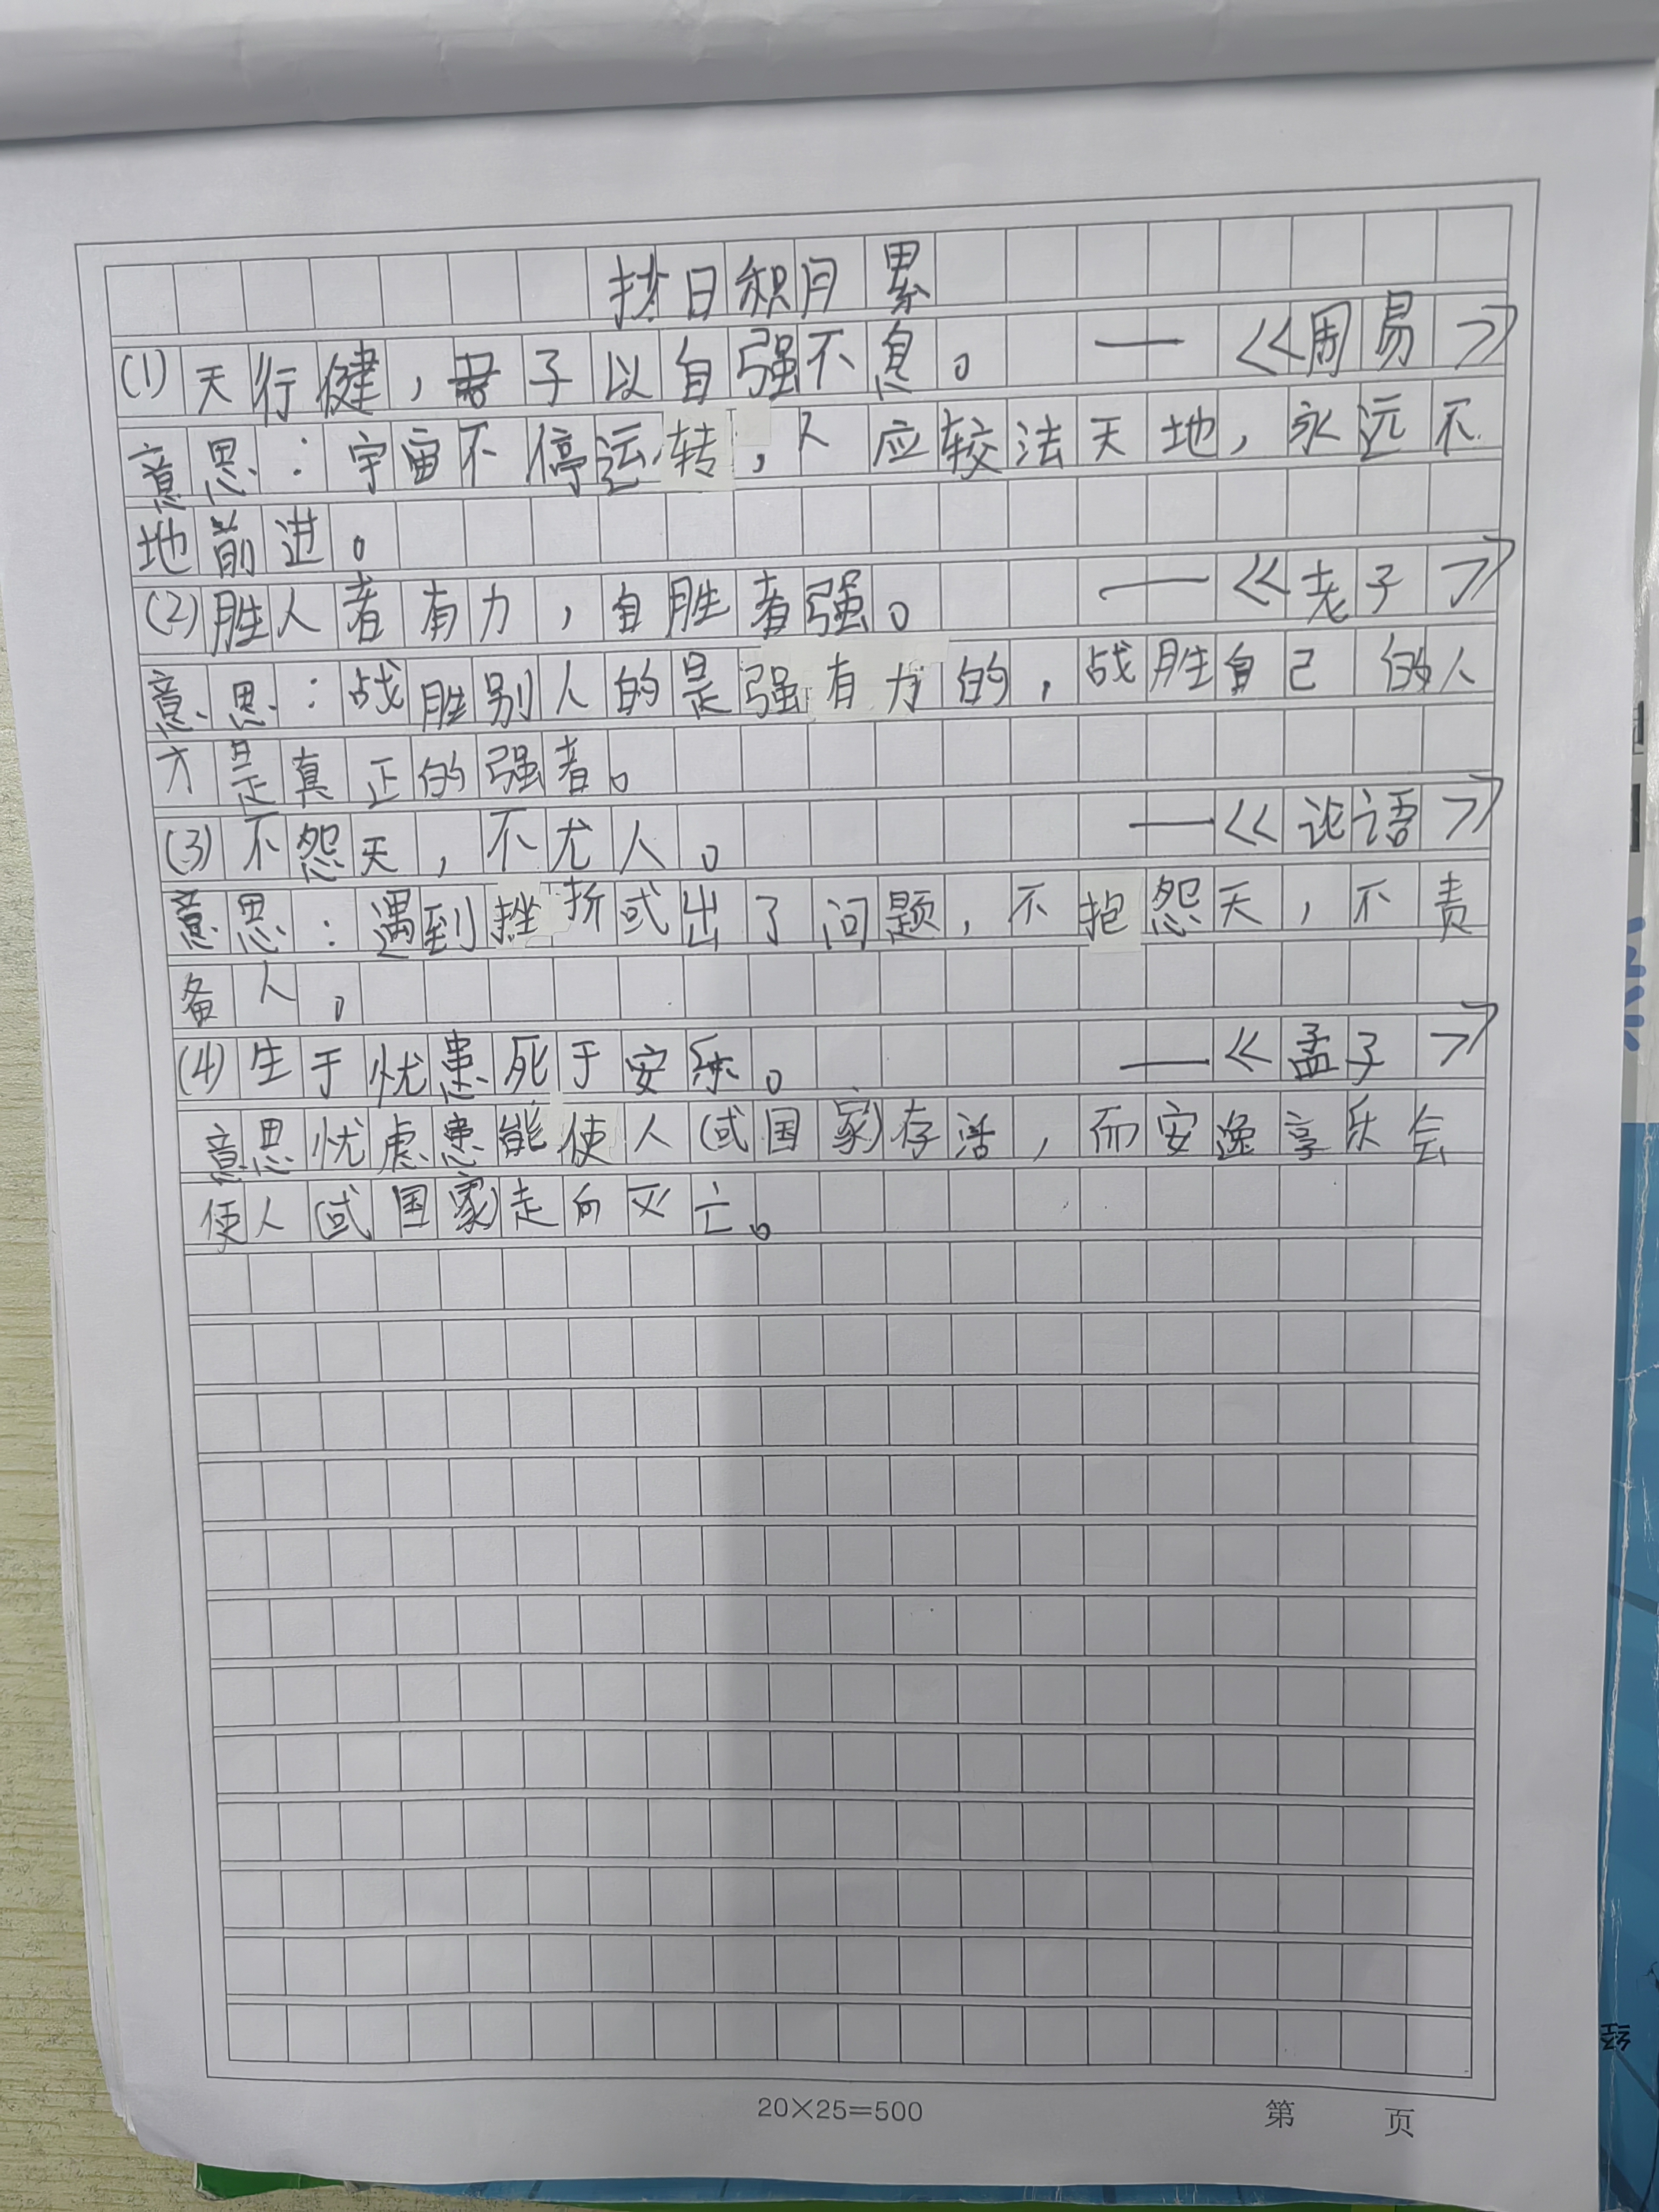 抄日积月累
(1)天行健,君子以自强不息。——《周易》
意思:宇宙不停运转,人应较法天地,永远不
地前进。
(2)胜人者有力,自胜者强。——《老子》
意思:战胜别人的是强有力的,战胜自己的人
才是真正的强者。
(3)不怨天,不尤人。——《论语》
意思:遇到挫折或出了问题,不抱怨天,不责
备人。
(4)生于忧患死于安乐。——《孟子》
意思忧虑患能使人(或国家)存活,而安逸享乐会
使人(或国家)走向灭亡。
20×25=500
第 页